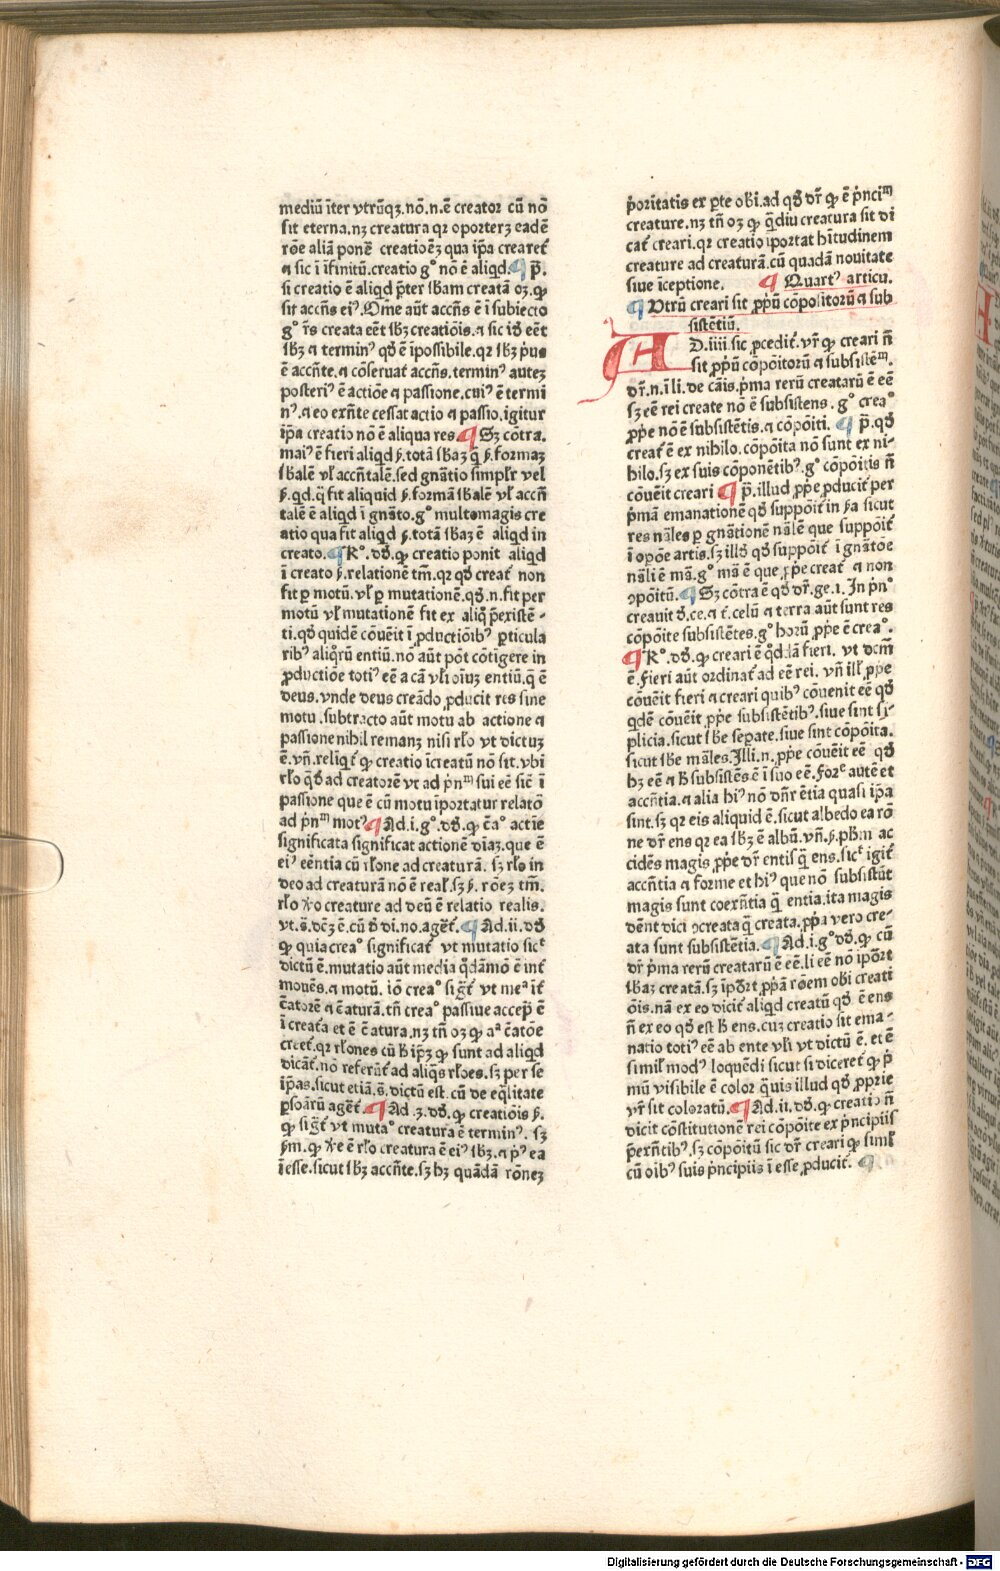 mediū īter vtrūqꝫ.nō.n.ē creator cū nō
sit eterna.nꝫ creatura qꝛ oporteret eadē
rōe aliā ponē creatiōeꝫ qua ip̄a crearet᷑
⁊ sic ī īfinitū.creatio gº nō ē aliqd. ¶ p̄.
si creatio ē aliqd p̄ter s̄bam creatā oꝫ.ꝙ
sit accn̄s eiꝰ.Ome aūt accn̄s ē ī subiecto
gº r̄s creata eēt sb̄ꝫ creatiōis.⁊ sic id̄ eēt
sb̄ꝫ ⁊ terminꝰ qd̄ ē īpossibile.qꝛ sb̄ꝫ p̓us
ē accn̄te.⁊ cōseruat᷑ accn̄s.terminꝰ auteꝫ
posteriꝰ ē actiōe ⁊ passione.cuiꝰ ē termi
nꝰ.⁊ eo exn̄te cessat actio ⁊ passio.igitur
ip̄a creatio nō ē aliqua res ¶ Sꝫ cōtra.
maiꝰ ē fieri aliqd ẜ.totā sb̄aꝫ q̄ ẜ.formaꝫ
sb̄alē vl̓ accn̄talē.sed gn̄atio simpl̓r vel
ẜ.qd.q̄ fit aliquid ẜ.formā sb̄alē vl̓ accn̄
talē ē aliqd ī gn̄ato.gº multomagis cre
atio qua fit aliqd ẜ.totā sb̄aꝫ ē aliqd in
creato. ¶ Rº.dd̄.ꝙ creatio ponit aliqd
ī creato ẜ.relationē tm̄.qꝛ qd̄ creat᷑ non
fit ꝑ motū.vl̓ ꝑ mutationē.qd̄.n.fit per
motū vl̓ mutationē fit ex aliq̄ p̄existē-
ti.qd̄ quidē cōuēit ī ꝓductiōibꝰ ꝑticula
ribꝰ aliq̄rū entiū.nō aūt pōt cōtigere in
ꝓductiōe totiꝰ eē a cā vl̓i oiuꝫ entiū.q̄ ē
deus.vnde deus creādo ꝓducit res sine
motu.subtracto aūt motu ab actione ⁊
passione nihil remanꝫ nisi rl̓o vt dictuꝫ
ē.vn̄.relīqt᷑ ꝙ creatio icreatū nō sit.vbi
rl̓o q̄dā ad creatorē vt ad p̓nᵐ sui eē sic̄ ī
passione que ē cū motu īportatur relatō
ad p̓nᵐ motꝰ ¶ Ad.i.gº.dd̄.ꝙ c̄aº actīe
significata significat actionē diāꝫ.que ē
eiꝰ eēntia cū rl̓one ad creaturā. sꝫ rl̓o in
deo ad creaturā nō ē real̓.sꝫ ẜ. rōeꝫ tm̄.
rl̓o ꝟo creature ad deū ē relatio realis.
vt.s̄.dc̄ꝫ ē.cū d̄ di.no.aget᷑. ¶ Ad.ii.dd̄
ꝙ quia creaº significat᷑ vt mutatio sicᵗ
dictū ē.mutatio aūt media q̄dāmō ē int᷑
mouēs.⁊ motū. iō creaº sigt᷑ vt meᵃ īt᷑
c̄atorē ⁊ c̄aturā.tn̄ creaº passiue accep̄ ē
ī creat᷑a et ē c̄atura.nꝫ tn̄ oꝫ ꝙ aᵃ c̄atōe
creet᷑.qꝛ rl̓ones cū h̄ ip̄ꝫ ꝙ sunt ad aliqd
dicāt᷑.nō referūt᷑ ad aliq̄s rl̓oes.sꝫ per se
ip̄as.sicut etiā.s̄.dictū est.cū de eq̄litate
ꝑsoāꝝ aget᷑. ¶ Ad .3.dd̄.ꝙ creatiōis ẜ.
ꝙ sigt᷑ vt mutaº creatura ē terminꝰ. sꝫ
ẜm.ꝙ ꝟe ē rl̓o creatura ē eiꝰ sb̄ꝫ.⁊ p̓ꝰ ea
ī esse.sicut sb̄ꝫ accn̄te.sꝫ hꝫ quādā rōneꝫ
p̓oritatis ex ꝑte obi̓.ad qd̄ dr̄ ꝙ ē p̓nciᵐ
creature.nꝫ tn̄ oꝫ ꝙ q̄diu creatura sit di
cat᷑ creari.qꝛ creatio īportat hītudinem
creature ad creaturā.cū quadā nouitate
siue īceptione. ¶ Quartꝰ articu.
¶ Vtrū creari sit ꝓpū cōpositorū ⁊ sub
sistētiū.
AD.iiii sic ꝓcedit᷑.vr̄ ꝙ creari n̄
sit ꝓpū cōpōitorū ⁊ subsistēᵐ.
dr̄.n.ī li.de cāis.p̓ma rerū creatarū ē eē
sꝫ eē rei create nō ē subsistens. gº creaº
ꝓpe nō ē subsistētis.⁊ cōpōiti. ¶ p̄.qd̄
creat᷑ ē ex nihilo.cōpōita nō sunt ex ni-
hilo.sꝫ ex suis cōponētibꝰ.gº cōpōitis n̄
cōuēit creari ¶ p̄.illud ꝓpe ꝓducit᷑ per
p̓mā emanationē qd̄ suppōit᷑ in ẜa sicut
res nāles ꝑ gnātionē nālē que suppōit᷑
ī opōe artis.sꝫ illd̄ qd̄ suppōit᷑ ī gnātōe
nāli ē mā.gº mā ē que ꝓpe creat᷑ ⁊ non
ꝯpōitū. ¶ Sꝫ cōtra ē qd̄ dr̄.ge.1. In p̓nº
creauit d̄.ce.⁊ t᷑.celū ⁊ terra aūt sunt res
cōpōite subsistētes.gº horū ꝓpe ē creaº.
¶ Rº.dd̄.ꝙ creari ē q̄ddā fieri. vt dcm̄
ē.Fieri aūt ordinat᷑ ad eē rei. vn̄ ill̓ ꝓpe
cōuēit fieri ⁊ creari quibꝰ cōuenit eē qd̄
qdē cōuēit ꝓpe subsistētibꝰ.siue sint si-
plicia.sicut sb̄e seperate.siue sint cōpōita.
sicut sb̄e māles.Illi.n.ꝓpe cōuēit eē qd̄
hꝫ eē ⁊ h̄ subsistēs ē ī suo eē.Forᵉ autē et
accn̄tia.⁊ alia hiꝰ nō dn̄r ētia quasi ip̄a
sint.sꝫ qꝛ eis aliquid ē.sicut albedo ea rō
ne dr̄ ens qꝛ ea sb̄ꝫ ē albū.vn̄.ẜ.ph̄m ac
cidēs magis ꝓpe dr̄ entis q̄ ens.sicᵗ igit᷑
accn̄tia ⁊ forme et hiꝰ que nō subsistūt
magis sunt coexn̄tia q̄ entia.ita magis
dēnt dici ꝯcreata q̄ creata.ꝓpa vero cre-
ata sunt subsistētia. ¶ Ad.i.gº dd̄.ꝙ cū
dr̄ p̓ma rerū creatarū ē eē.li eē nō ipōrt᷑
sb̄aꝫ creatā.sꝫ īpōrt᷑.ꝓpā rōem obi̓ creati
ōis.nā ex eo dicit᷑ aliqd creatū qd̄ ē ens
n̄ ex eo qd̄ est h̄ ens.cuꝫ creatio sit ema-
natio totiꝰ eē ab ente vl̓i vt dictū ē. et ē
simil̓ modꝰ loquēdi sicut si diceret᷑ ꝙ p̓
mū visibile ē color q̄uis illud qd̄ ꝓprie
vr̄ sit coloratū. ¶ Ad.ii.dd̄.ꝙ creatio n̄
dicit cōstitutionē rei cōpōite ex p̓ncipiis
p̄exn̄tibꝰ.sꝫ cōpōitū sic dr̄ creari ꝙ simĺ
cū oibꝰ suis p̓ncipiis ī esse ꝓducit᷑. ¶
Digitalisierung gefördert durch die Deutsche Forschungsgemeinschaft - DFG